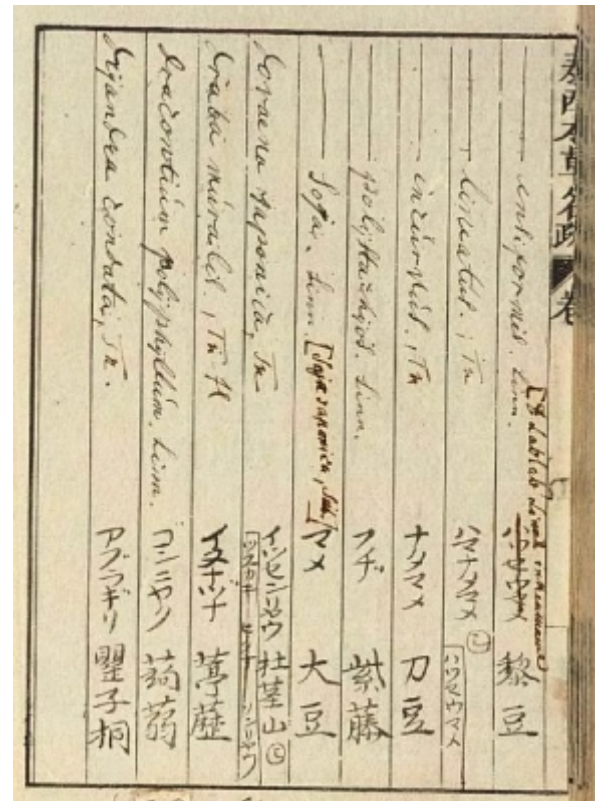 泰西本草名疏 卷
— ensiformis. Linn. ハセウマメ 黎豆
— lineatus., Tn ハマナタマメ ハウマウマメ
— incurvus., Tn ナタマメ 刀豆
— polystachyos. Linn. フヂ 紫藤
— Soja, Linn. [Soja japonica, Sieb.] マメ 大豆
Doraena japonica, Tn イヅセンリヤウ 杜茎山
Draba muralis., Tn イヌナヅナ 葶藶
Dracontium polyphyllum. Linn. コンニヤク 蒟蒻
Dryandra cordata, Tn. アブラギリ 罌子桐